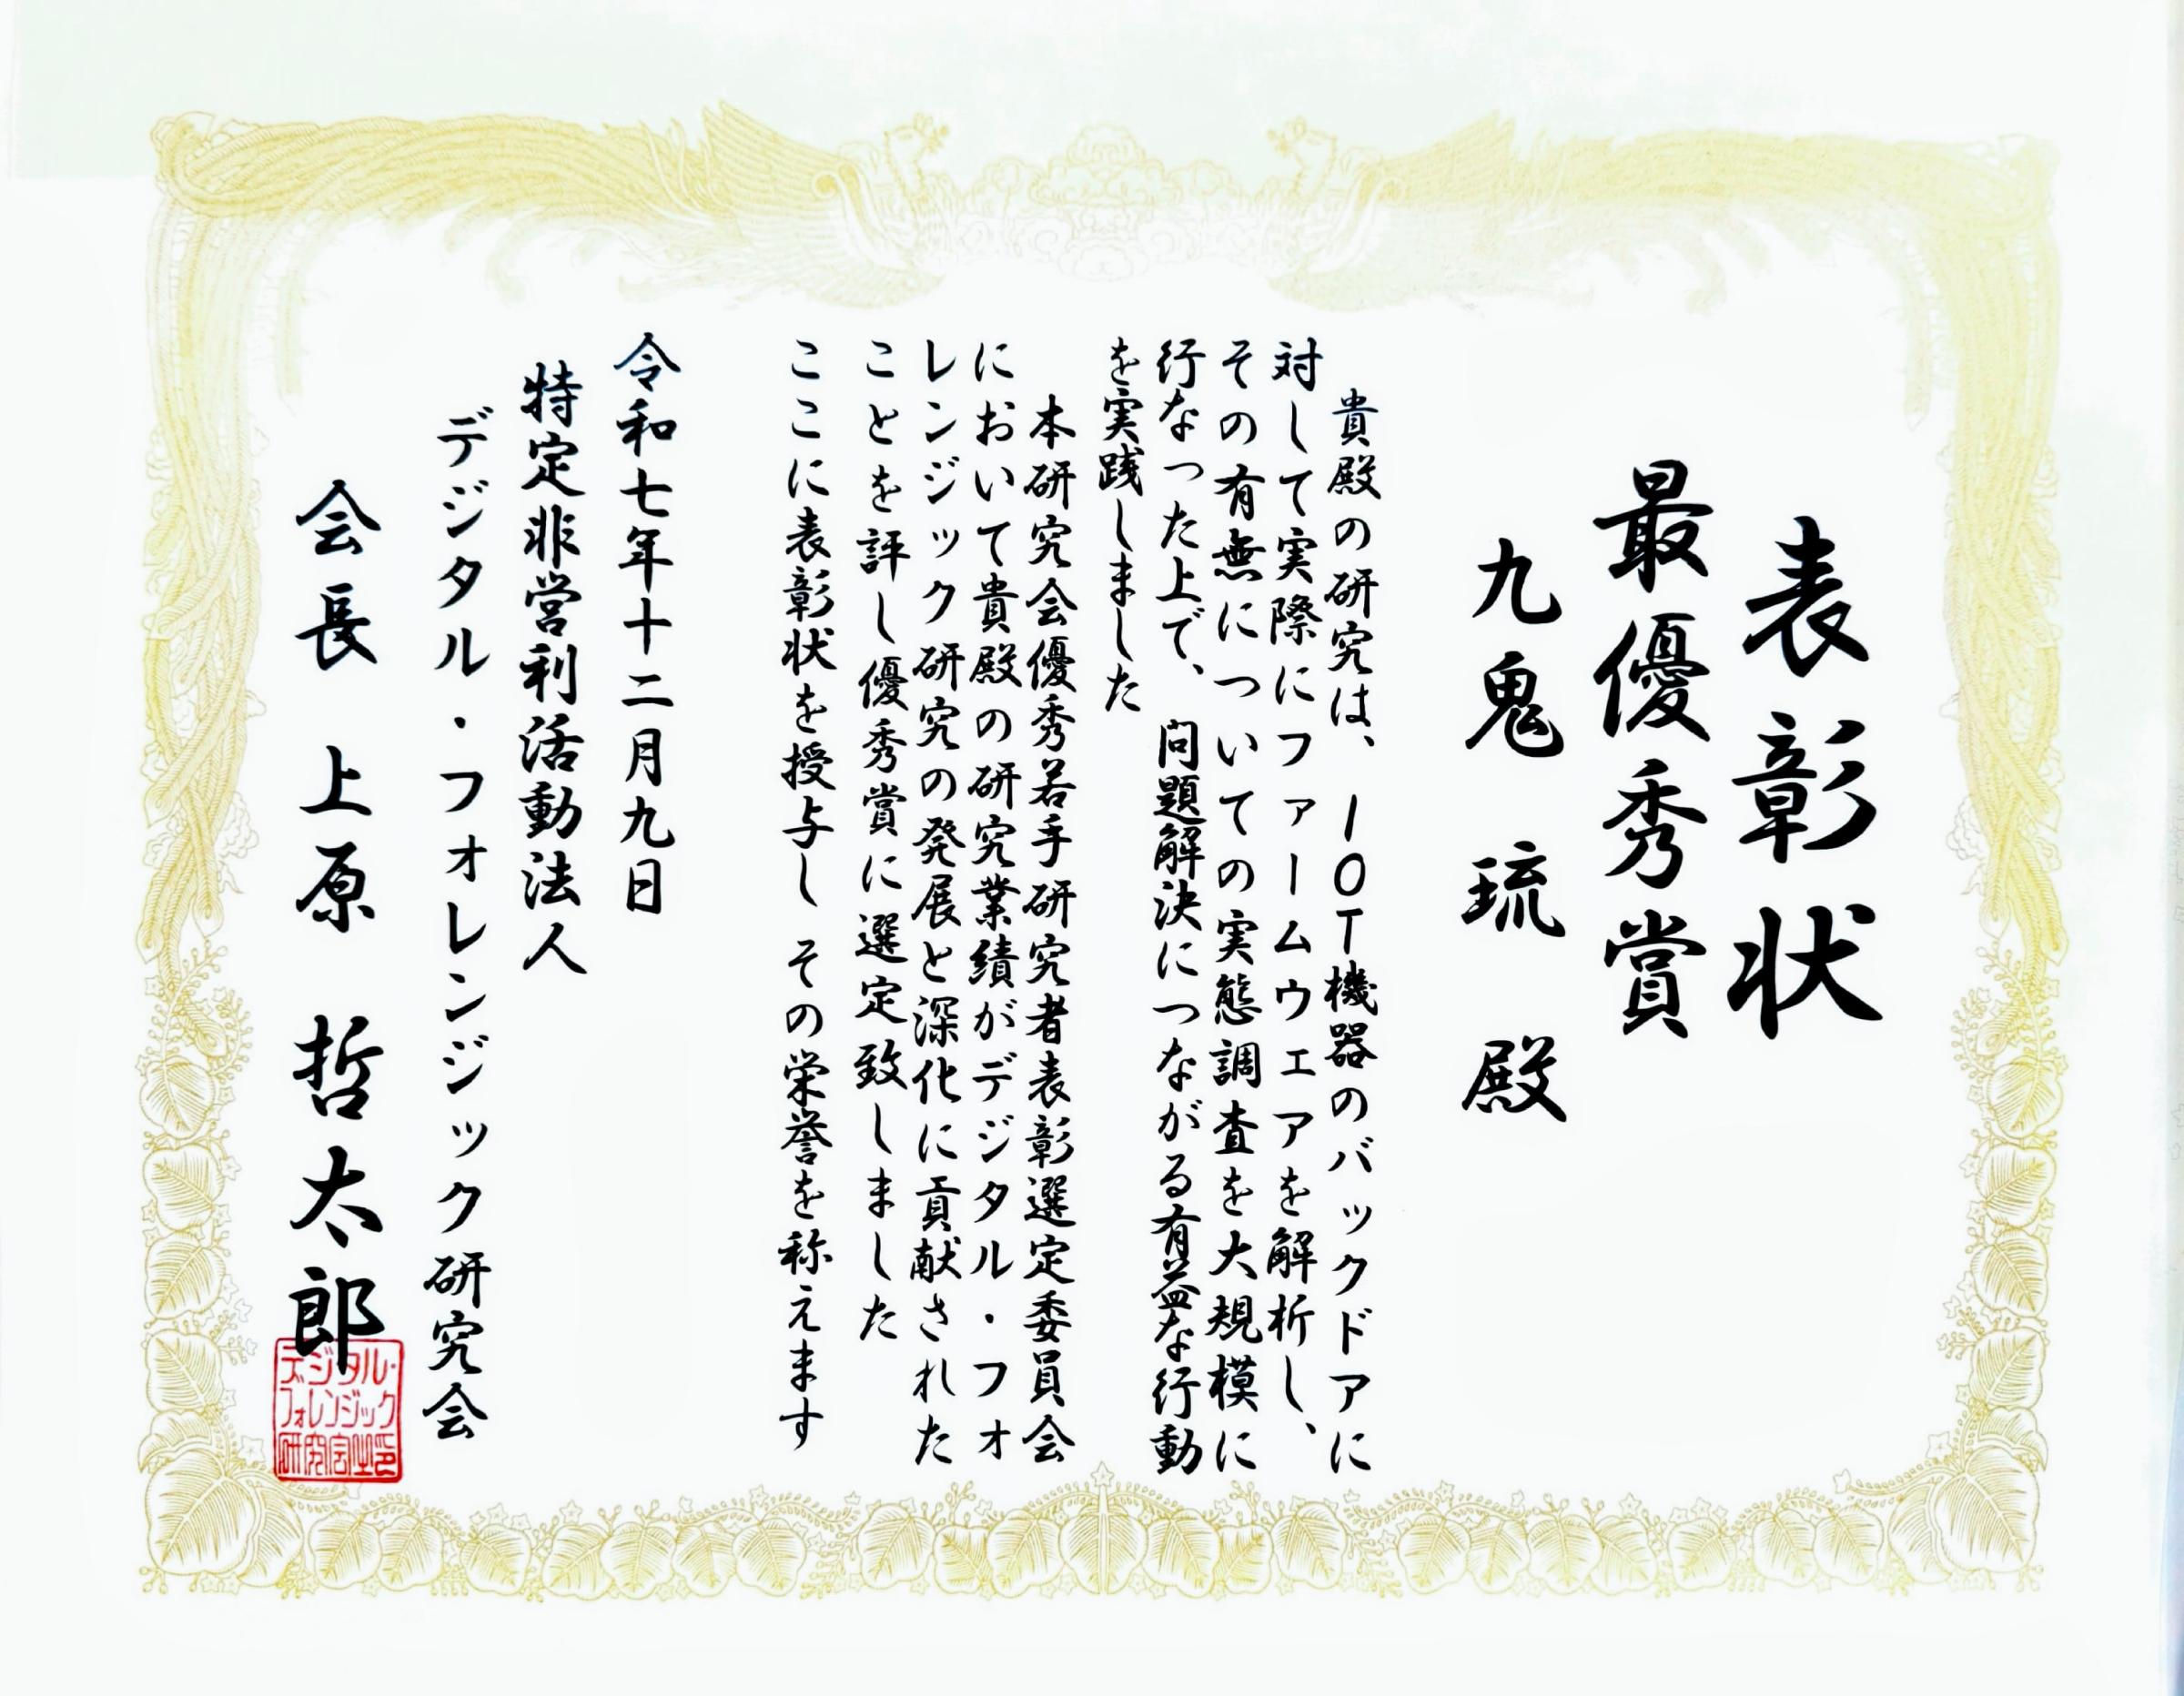 表彰状
最優秀賞
九鬼 琉 殿
貴殿の研究は、IOT機器のバックドアに
対して実際にファームウェアを解析し、
その有無についての実態調査を大規模に
行なった上で、問題解決につながる有益な行動
を実践しました
本研究会優秀若手研究者表彰選定委員会
において貴殿の研究業績がデジタル・フォ
レンジック研究の発展と深化に貢献された
ことを評し優秀賞に選定致しました
ここに表彰状を授与し その栄誉を称えます
令和七年十二月九日
特定非営利活動法人
デジタル・フォレンジック研究会
会長 上原 哲太郎
デジタル・
フォレンジック
研究会之印